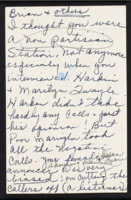 Brian & others
I thought you were
a non partisian
Station. Not anymore
especially when you
interviewed Harkin
& Marilyn Quayle
Harkin didn't take
hardly any Calls - just
his opinion. But
Poor Marilyn took
all the negative
Calls. Your
announcer was very
biased - cutting the
callers off (a listener)